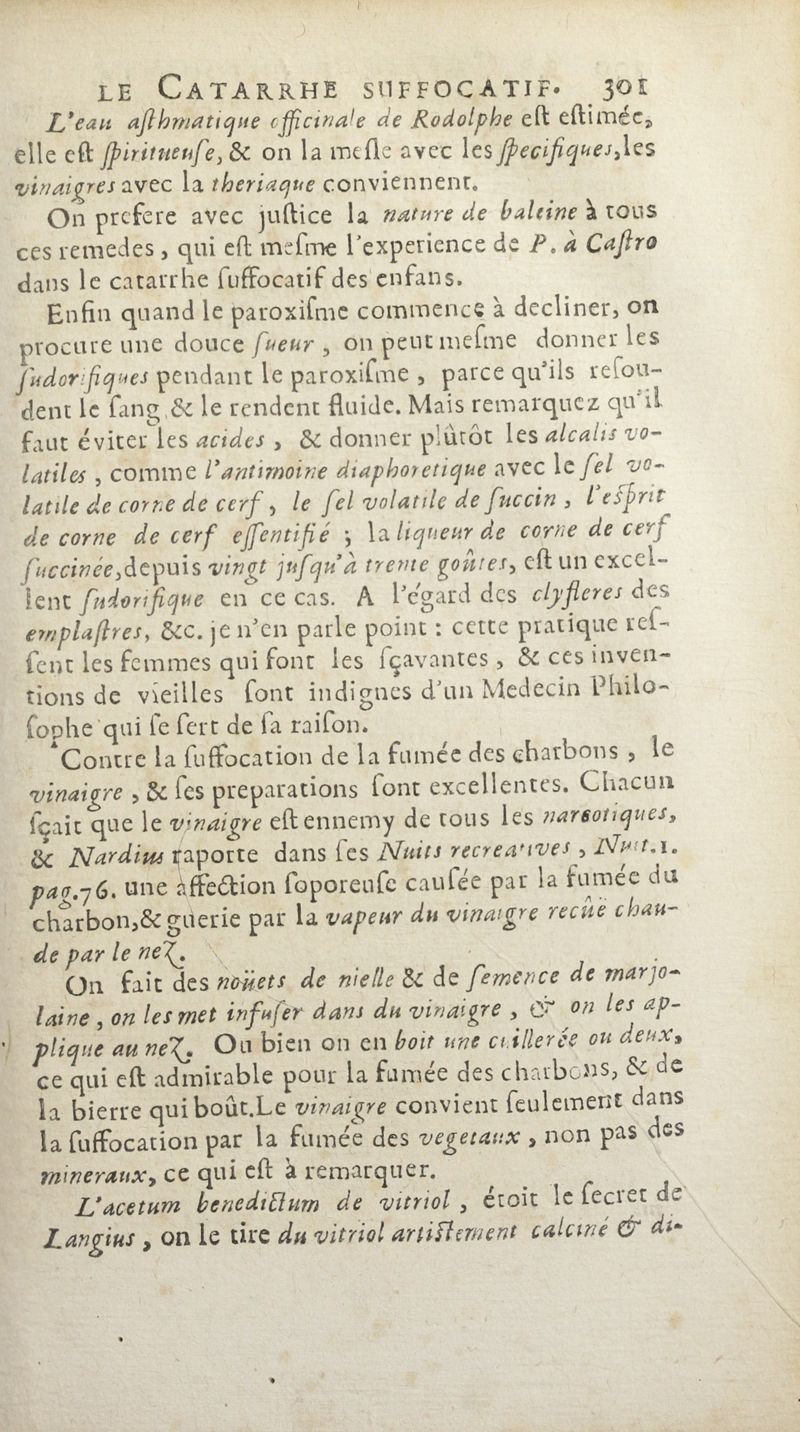 LE CATARRHE SUFFOCATIF. 301
L'eau aſthmatique officinale de Rodolphe eſt eſtimée,
elle eſt ſpiritueuſe, & on la meſle avec les ſpecifiques, les
vinaigres avec la theriaque conviennent.
On prefere avec juſtice la nature de baleine à tous
ces remedes, qui eſt meſme l'experience de P. à Caſtro
dans le catarrhe ſuffocatif des enfans.
Enfin quand le paroxiſme commence à decliner, on
procure une douce ſueur, on peut meſme donner les
ſudorifiques pendant le paroxiſme, parce qu'ils reſou-
dent le ſang & le rendent fluide. Mais remarquez qu'il
faut éviter les acides, & donner plûtôt les alcalis vo-
latiles, comme l'antimoine diaphoretique avec le ſel vo-
latile de corne de cerf, le ſel volatile de ſuccin, l'eſprit
de corne de cerf eſſentifié ; la liqueur de corne de cerf
ſuccinée, depuis vingt juſqu'à trente goûtes, eſt un excel-
lent ſudorifique en ce cas. A l'égard des clyſteres des
emplaſtres, &c. je n'en parle point : cette pratique reſ-
ſent les femmes qui font les ſçavantes, & ces inven-
tions de vieilles ſont indignes d'un Medecin Philo-
ſophe qui ſe ſert de ſa raiſon.
Contre la ſuffocation de la fumée des charbons, le
vinaigre, & ſes preparations ſont excellentes. Chacun
ſçait que le vinaigre eſt ennemy de tous les narcotiques,
& Nardius raporte dans ſes Nuits recreatives, Nuit. 1.
pag. 76. une affection ſoporeuſe cauſée par la fumée du
charbon, & guerie par la vapeur du vinaigre recüe chau-
de par le nez.
On fait des noüets de nielle & de ſemence de marjo-
laine, on les met infuſer dans du vinaigre, & on les ap-
plique au nez. Ou bien on en boit une cuillerée ou deux,
ce qui eſt admirable pour la fumée des charbons, & de
la bierre qui boût. Le vinaigre convient ſeulement dans
la ſuffocation par la fumée des vegetaux, non pas des
mineraux, ce qui eſt à remarquer.
L'acetum benedictum de vitriol, étoit le ſecret de
Langius, on le tire du vitriol artiſtement calciné & di-